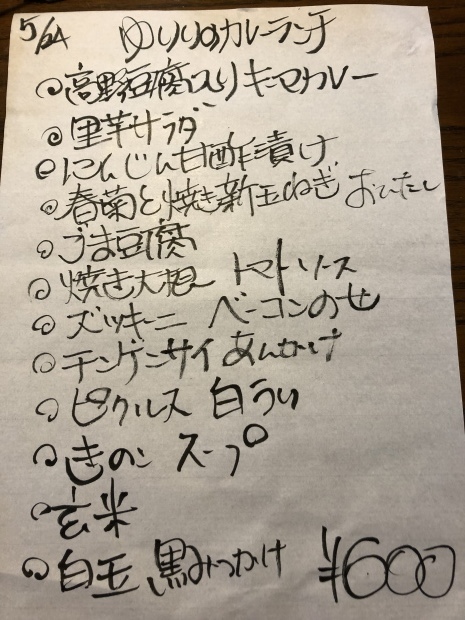 5/24 ゆりりのカレーランチ
高野豆腐入りキーマカレー
里芋サラダ
にんじん甘酢漬け
春菊と焼き新玉ねぎ おひたし
ごま豆腐
焼き大根 トマトソース
ズッキーニ ベーコンのせ
チンゲンサイ あんかけ
ピクルス 白うり
きのこ スープ
玄米
白玉 黒みつかけ ¥600